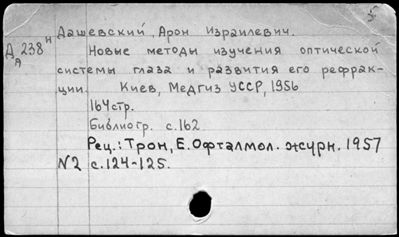 Дашевский, Арон Израилевич.
Д 238 н
я
Новые методы изучения оптической
системы глаза и развития его рефрак-
ции. Киев, Медгиз УССР, 1956
164 стр.
Библиогр. с. 162
Рец.: Трон, Е. Офталмол. журн. 1957
N2 с. 124-125.